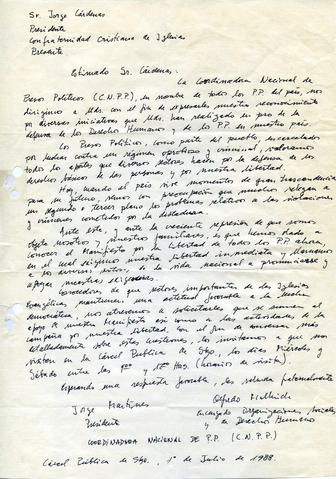 Sr. Jorge Cárdenas
Presidente
Confraternidad Cristiana de Iglesias
Presente
Estimado Sr. Cárdenas:
La Coordinadora Nacional de
Presos Políticos (C.N.P.P.), en nombre de todos los P.P. del país, nos
dirigimos a Uds. con el fin de expresarles nuestro reconocimiento
por diversas iniciativas que Uds. han realizado en pro de la
defensa de los Derechos Humanos y de los P.P. en nuestro país.
Los Presos Políticos, como parte del pueblo, encarcelados
por luchar contra un régimen opresivo y criminal, valoramos
todos los aportes que diversos sectores hacen por la defensa de los
derechos básicos de las personas y por nuestra libertad.
Hoy, cuando el país vive momentos de gran trascendencia
para su futuro, vemos con preocupación que muchos relegan a
un segundo o tercer plano los problemas relativos a las violaciones
y crímenes cometidos por la dictadura.
Ante esto, y ante la creciente represión de que somos
objeto nosotros y nuestros familiares, es que hemos dado a
conocer el Manifiesto por la Libertad de todos los P.P. ahora,
en el cual exigimos nuestra libertad inmediata y llamamos
a los diversos sectores de la vida nacional a pronunciarse y
apoyar nuestras exigencias.
Conocedores de que sectores importantes de las Iglesias
Evangélicas, mantienen una actitud favorable a la lucha
democrática, nos atrevemos a solicitarles que se sumen al
apoyo de nuestro Manifiesto así como a las actividades de la
campaña por nuestra libertad. Con el fin de conversar más
detalladamente sobre estas cuestiones, los invitamos a que nos
visiten en la Cárcel Pública de Stgo., los días Miércoles y
Sábado entre las y 16 Hrs. (horarios de visita).
Esperando una respuesta favorable, les saludan fraternalmente
Jorge Martínez
Presidente
Alfredo
Encargado Organizaciones Sociales
y de Derechos Humanos
COORDINADORA NACIONAL DE P.P. (C.N.P.P.)
Cárcel Pública de Stgo., 1° de Julio de 1988.